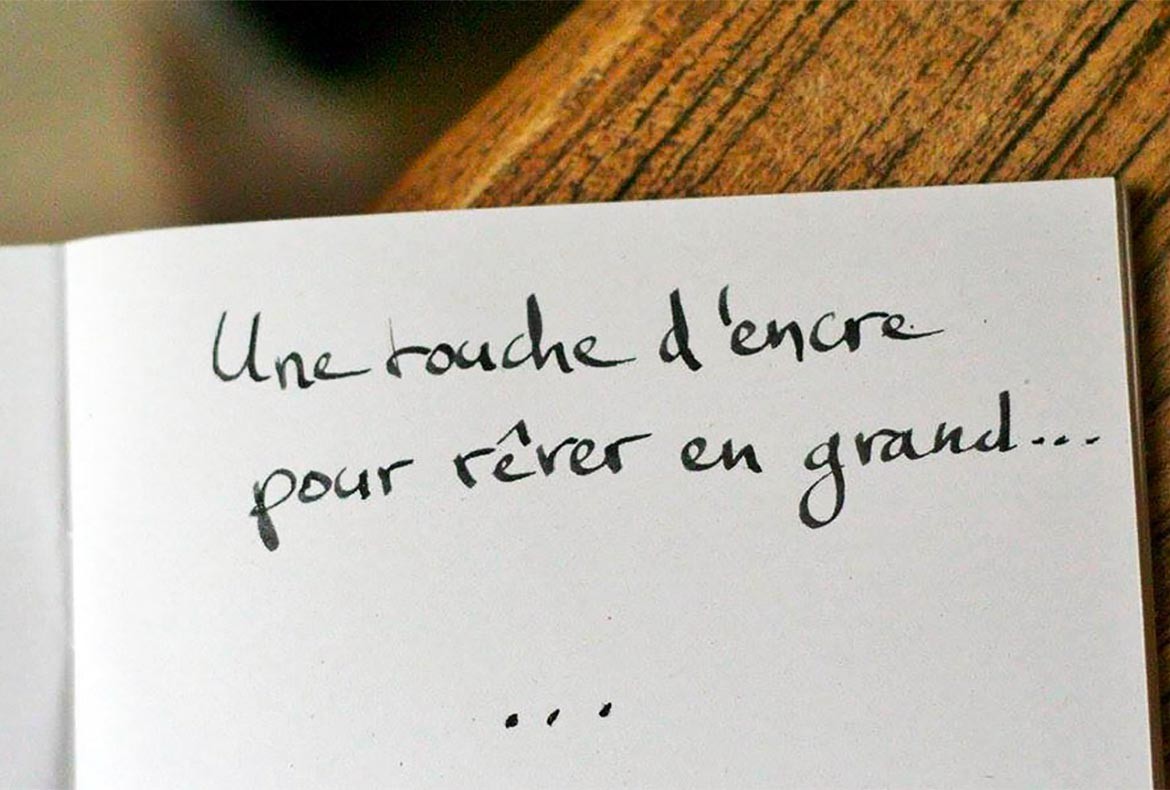 Une touche d'encre
pour rêver en grand...
...